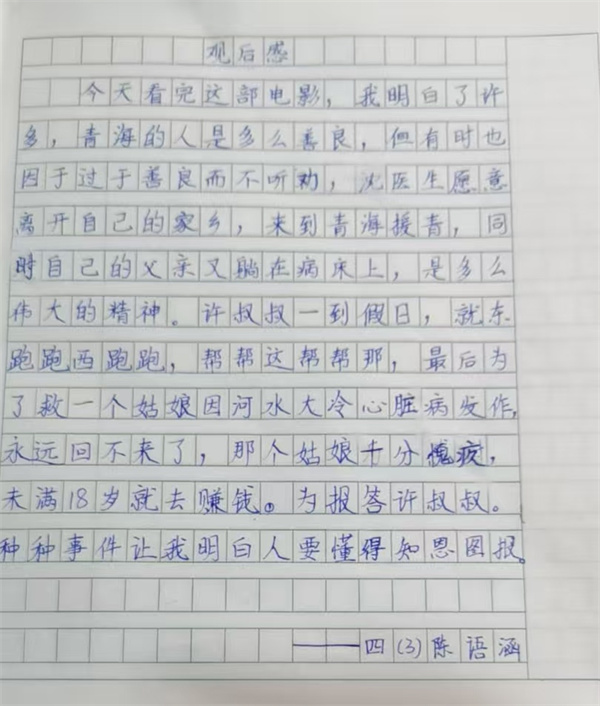 观后感
今天看完这部电影，我明白了许
多，青海的人是多么善良，但有时也
因于过于善良而不听劝，沈医生愿意
离开自己的家乡，来到青海援青，同
时自己的父亲又躺在病床上，是多么
伟大的精神。许叔叔一到假日，就东
跑跑西跑跑，帮帮这帮帮那，最后为
了救一个姑娘因河水大冷心脏病发作，
永远回不来了，那个姑娘十分愧疚，
未满18岁就去赚钱。为报答许叔叔。
种种事件让我明白人要懂得知恩图报。
——四(3)陈语涵